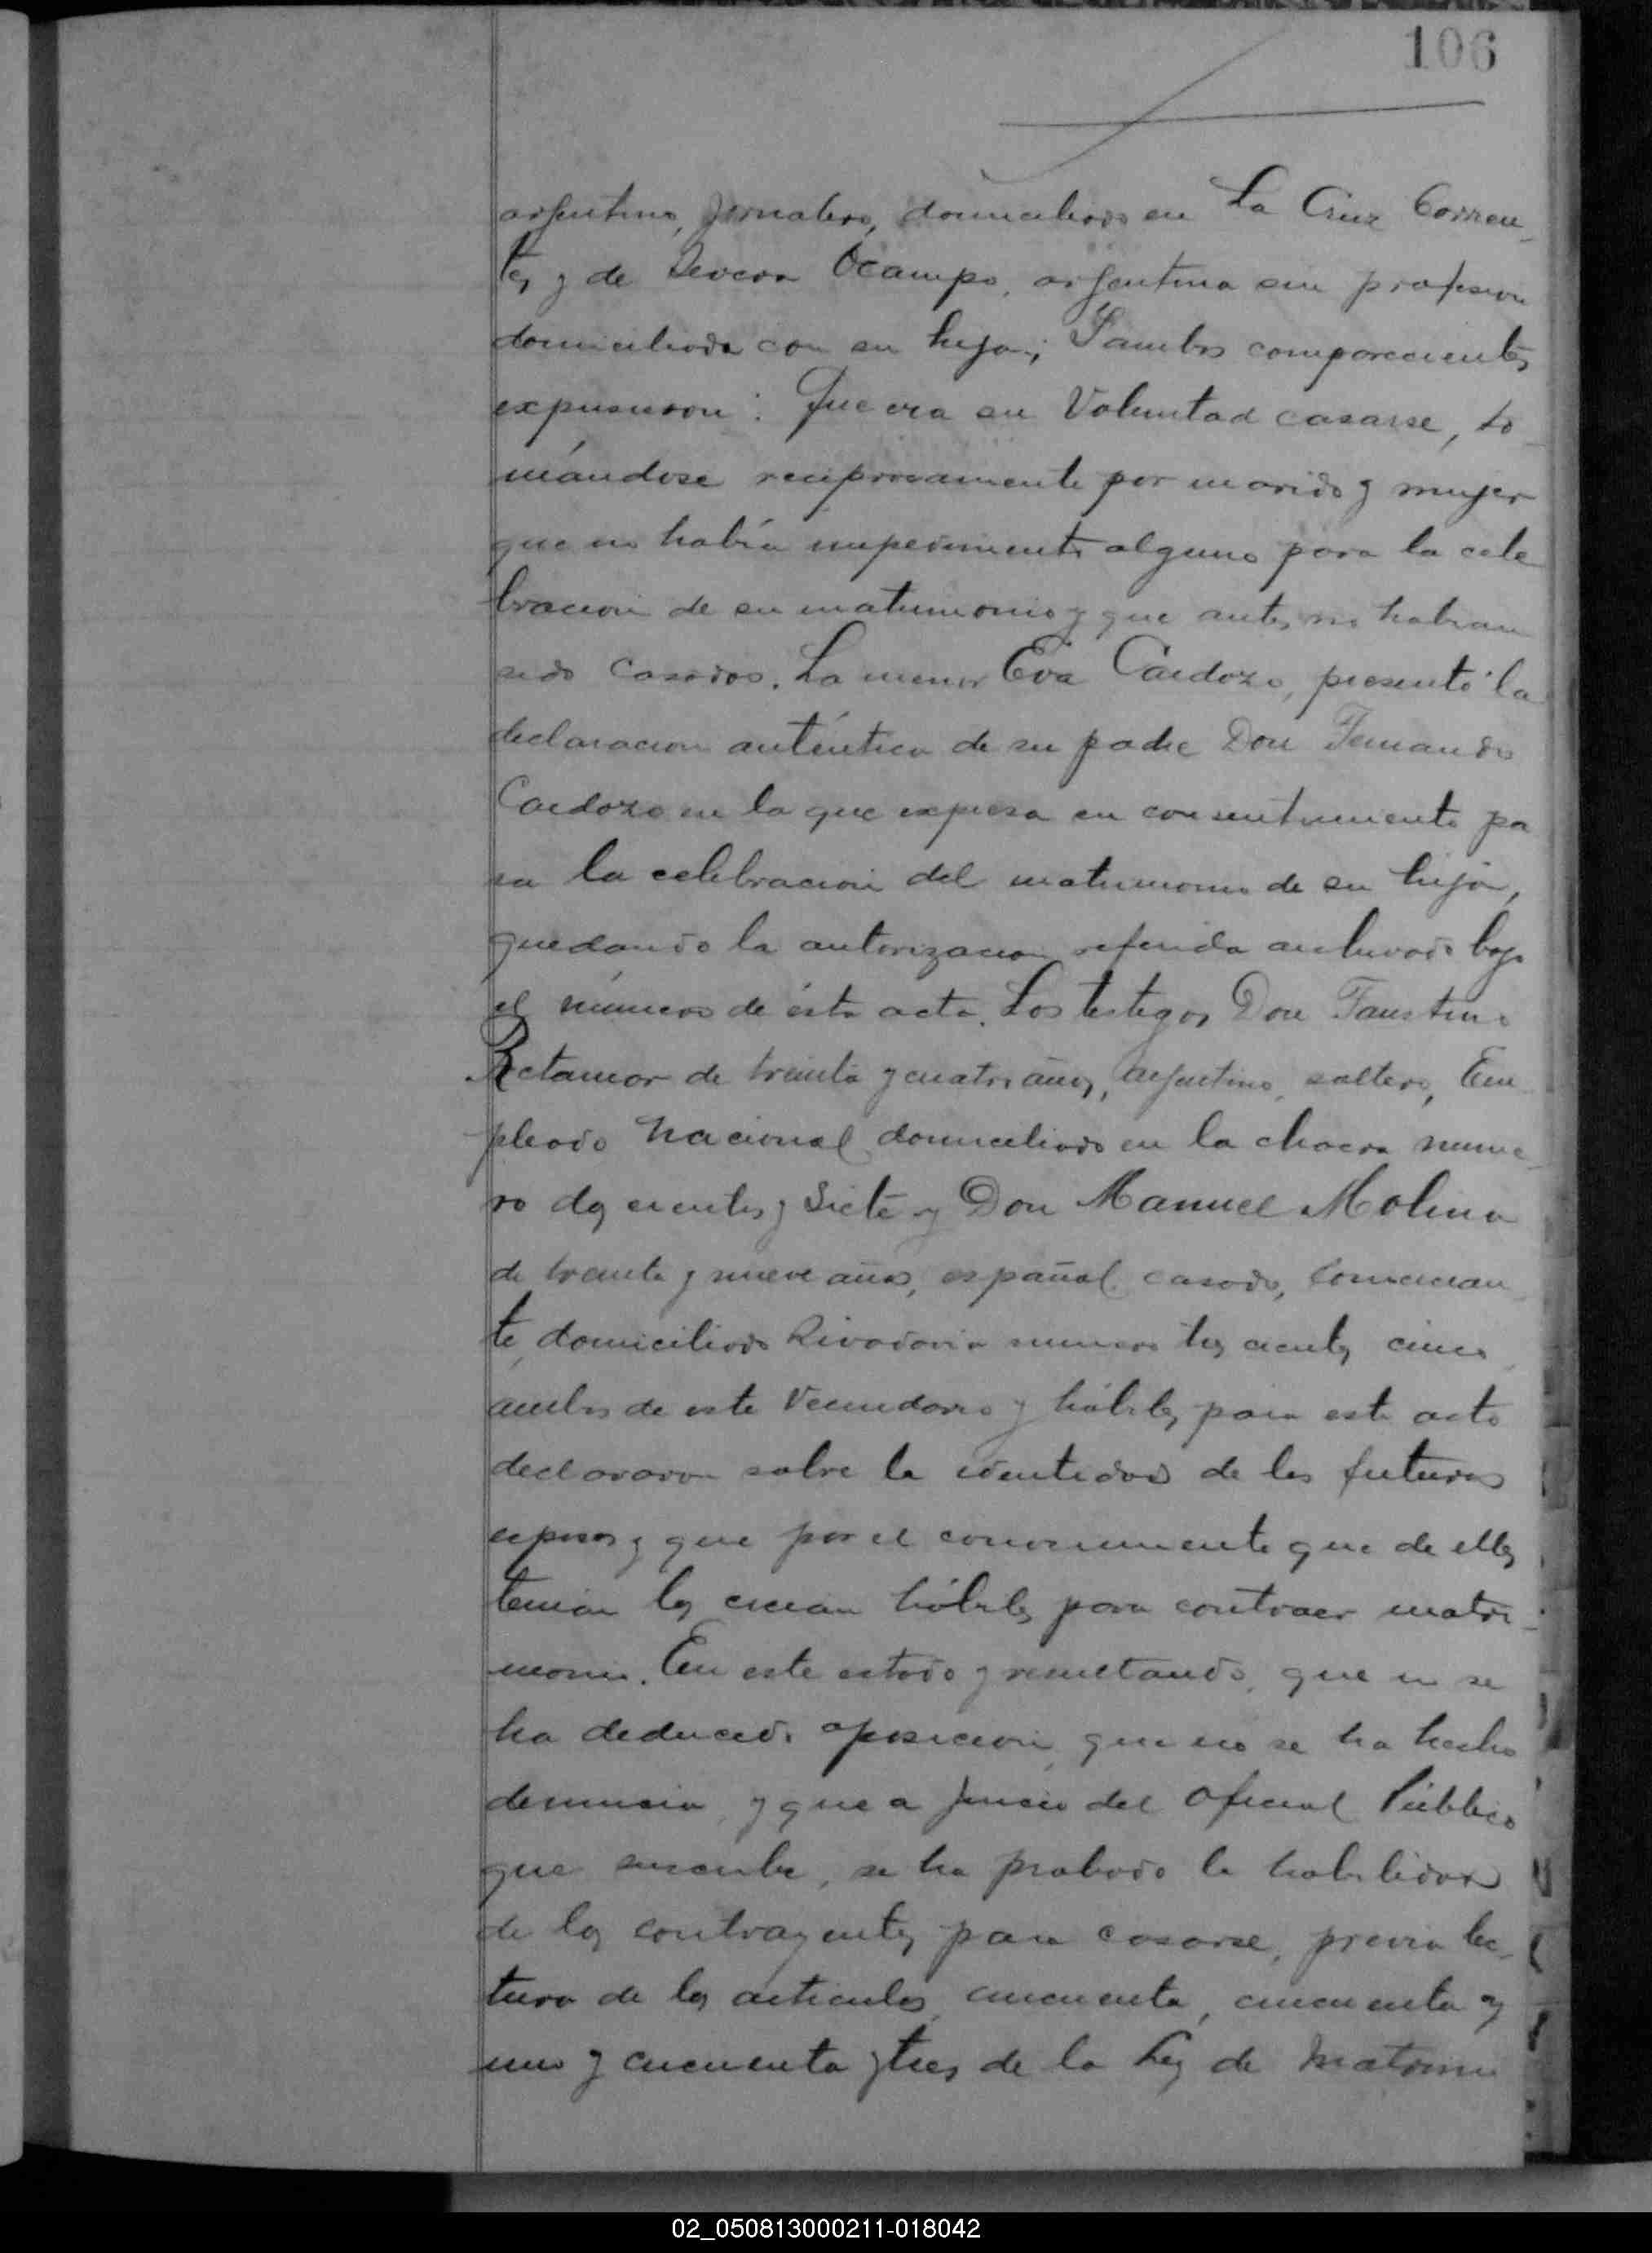 106
argentino, jornalero, domiciliado en La Cruz Corrien-
tes y de Severa Ocampo, argentina sin profesion
domiciliada con su hija; Y ambos comparecientes
expusieron: Que era su Voluntad casarse, to-
mándose reciprocamente por marido y mujer
que no había impedimento alguno para la cele
bracion de su matrimonio y que antes no habian
sido casados. La menor Eva Cardozo, presentó la
declaracion auténtica de su padre Don Fernando
Cardozo en la que expresa su consentimiento pa
ra la celebracion del matrimonio de su hija,
quedando la autorizacion referida archivada bajo
el número de ésta acta. Los testigos Don Faustino
Retamar de treinta y cuatro años, argentino, soltero, Em-
pleado Nacional, domiciliado en la chacra nume-
ro dos cientos y siete y Don Manuel Molina
de treinta y nueve años, español, casado, Comercian-
te, domiciliado Rivadavia numero tres cientos cinco
ambos de este Vecindario y hábiles para este acto
declararon sobre la identidad de los futuros
esposos y que por el conocimiento que de ellos
tenian los creian hábiles para contraer matri-
monio. En este estado y resultando, que no se
ha deducido oposicion, que no se ha hecho
denuncia, y que a juicio del Oficial Público
que suscribe, se ha probado la habilidad
de los contrayentes para casarse, previa lec-
tura de los articulos cincuenta, cincuenta y
uno y cincuenta y tres de la Ley de Matrimo
02_050813000211-018042